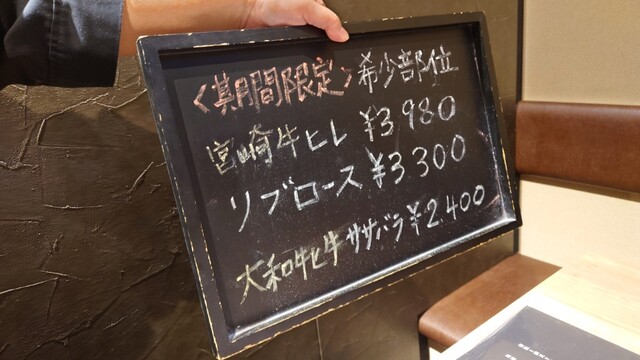 〈期間限定〉希少部位
宮崎牛ヒレ ¥3980
リブロース ¥3300
大和牝牛ササバラ¥2.400